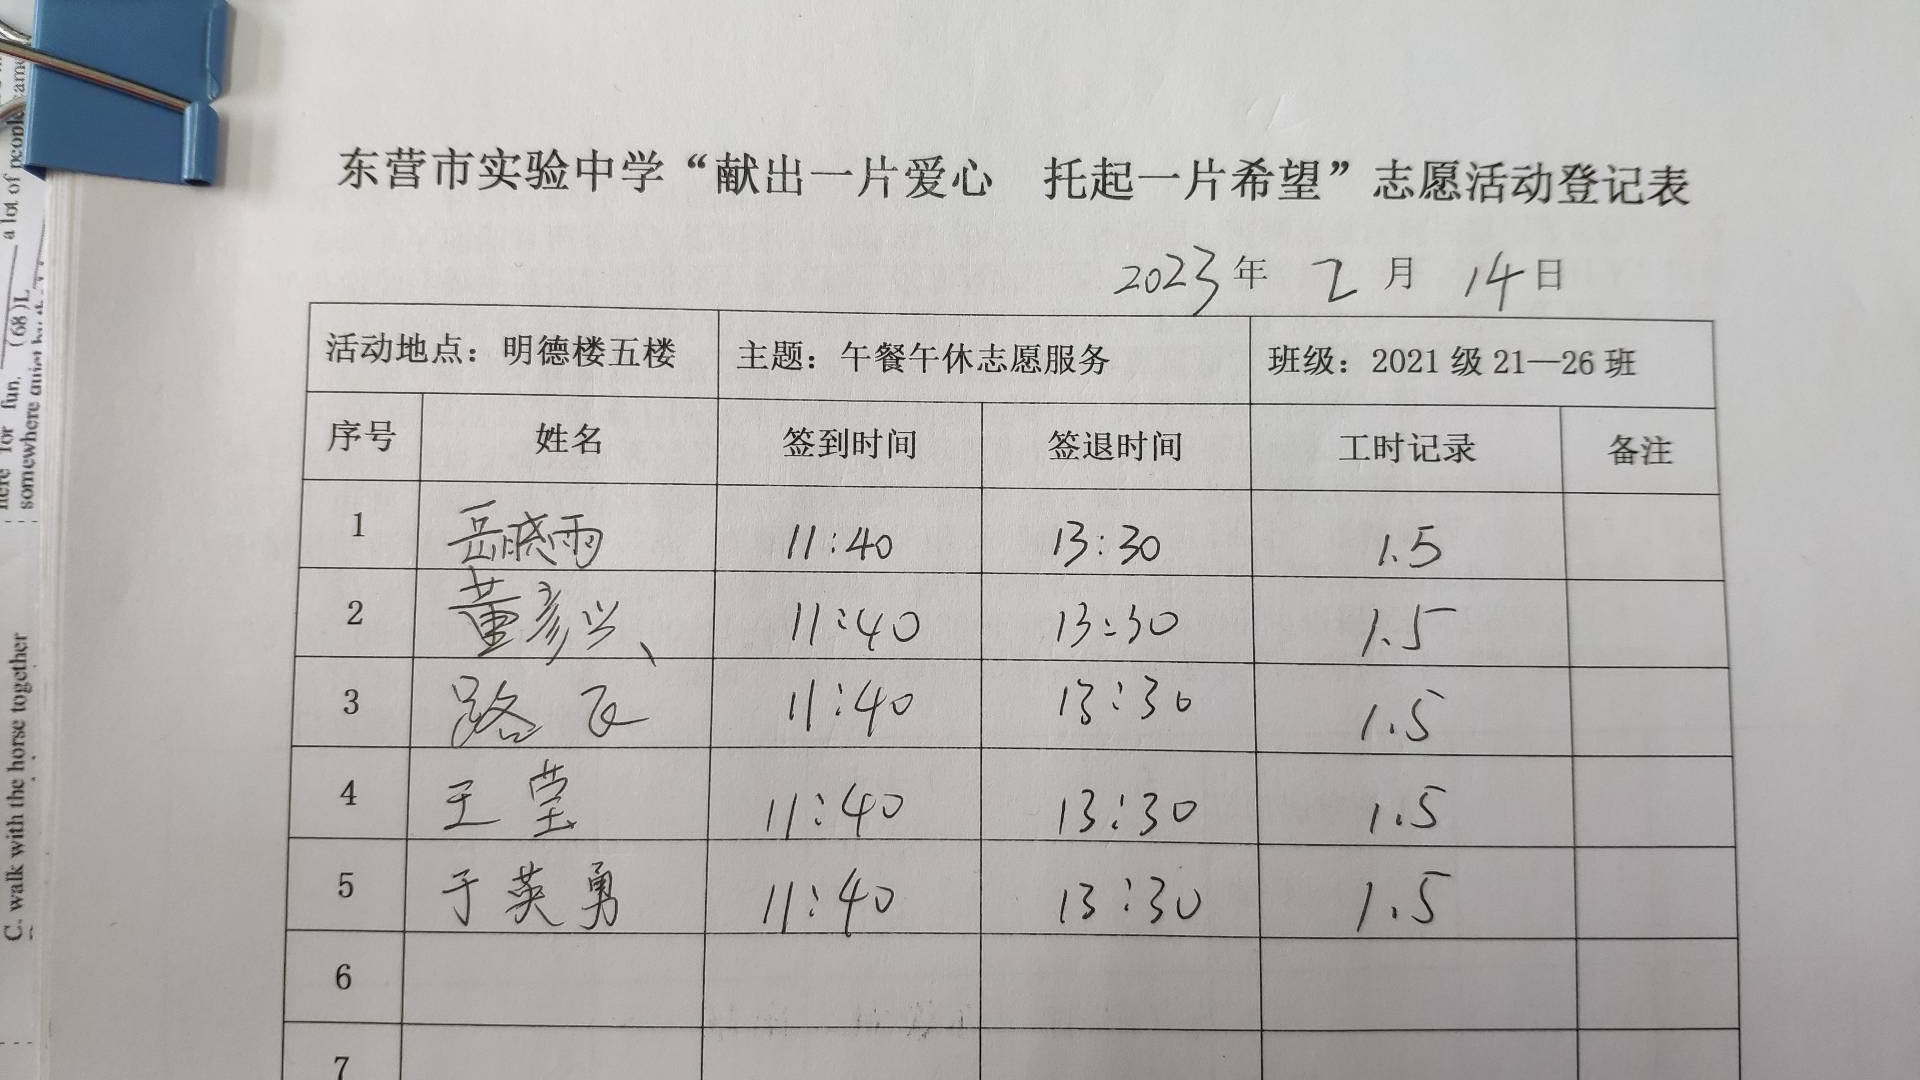 东营市实验中学“献出一片爱心 托起一片希望”志愿活动登记表
2023年 2月 14日
活动地点：明德楼五楼 主题：午餐午休志愿服务 班级：2021级21—26班
序号 姓名 签到时间 签退时间 工时记录 备注
1 岳晓雨 11:40 13:30 1.5
2 董彦兴 11:40 13:30 1.5
3 路飞 11:40 13:30 1.5
4 王莹 11:40 13:30 1.5
5 于英勇 11:40 13:30 1.5
6
7
a lot of people
(68)L
here for fun.
somewhere
C. walk with the horse together